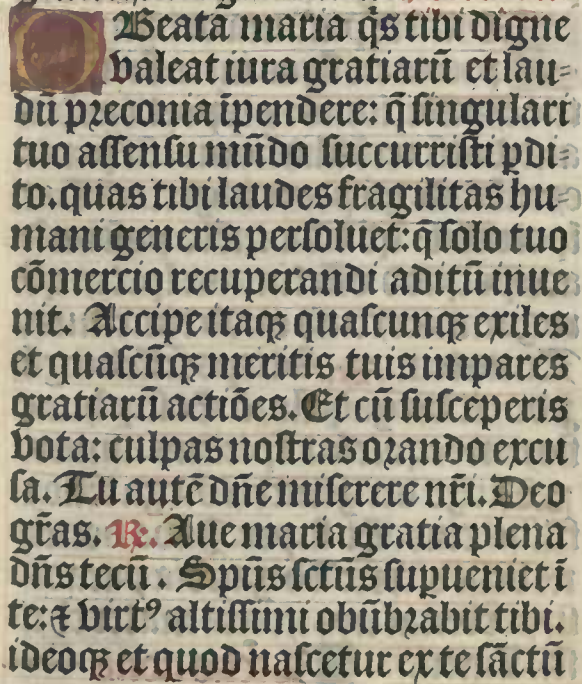 O Beata maria q̄s tibi digne
valeat iura gratiarū et lau⸗
dū preconia īpendere: q̄ singulari
tuo assensu mūdo succurristi ꝑdi⸗
to. quas tibi laudes fragilitas hu⸗
mani generis persoluet: q̄ solo tuo
cōmercio recuperandi aditū inue
nit. Accipe itaqꝫ quascunqꝫ exiles
et quascūqꝫ meritis tuis impares
gratiarū actiões. Et cū susceperis
vota: culpas nostras orando excu
sa. Tu autē dñe miserere nr̄i. Deo
gr̄as. ℟. Aue maria gratia plena
dñs tecū. Spūs sctūs supueniet ī
te: ⁊ virtꝰ altissimi obūbrabit tibi.
ideoqꝫ et quod nascetur ex te sāctū